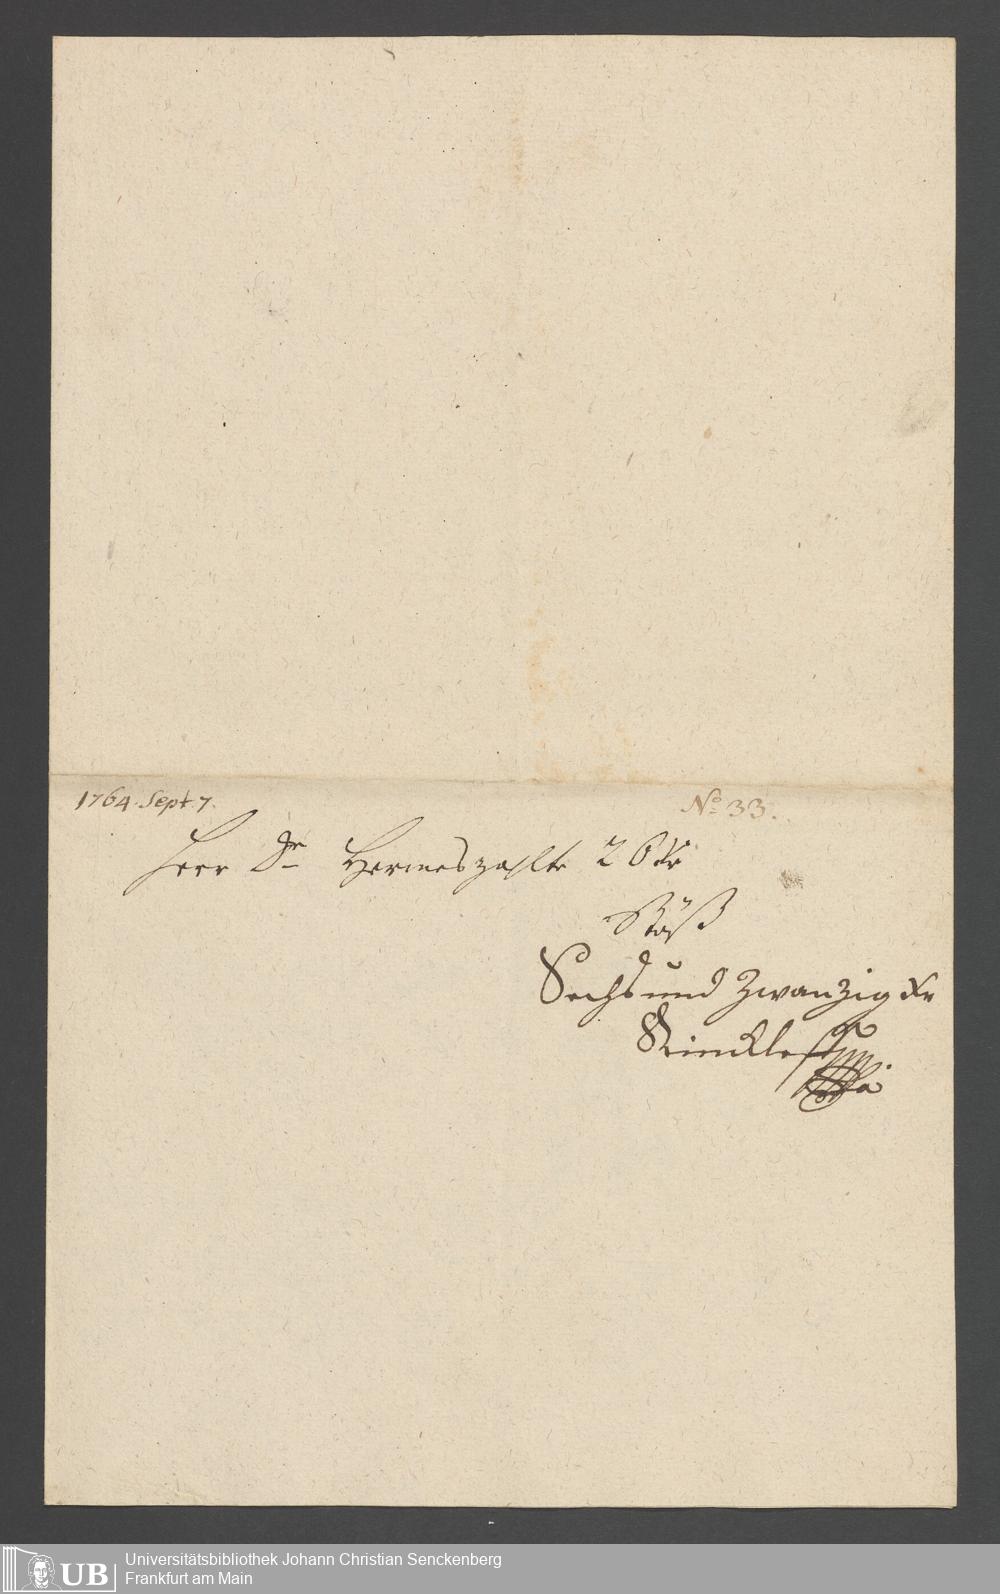 1764. Sept. 7.
No 33.
Herr Dr Hermes zahlte 26 Xr
Sechs und Zwanzig Xr
UB
Universitätsbibliothek Johann Christian Senckenberg
Frankfurt am Main